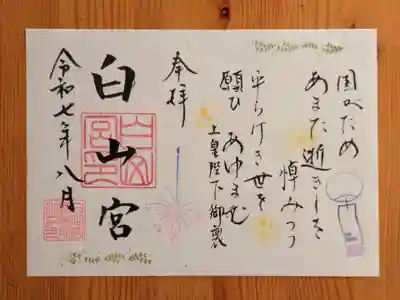 国のため
あまた逝きしを
悼みつつ
平らけき世を
願ひ あゆまむ
上皇陛下御製
奉拝
白山宮
令和七年八月